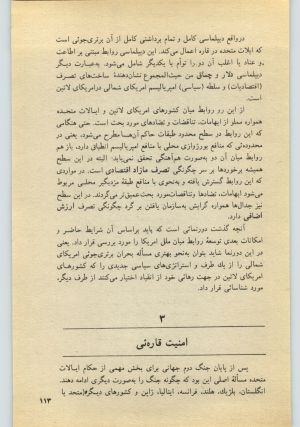 درواقع دیپلماسی کامل و تمام برداشتنی کامل از آن برتری‌جوئی است
که ایالات متحده در قاره اعمال می‌کند. این دیپلماسی روابط مبتنی بر اطاعت
و عناد یا اغلب آن دو را توأم با یکدیگر شامل می‌شود. به‌عبارت دیگر
دیپلماسی دلار و چماق من حیث‌المجموع نشان‌دهندهٔ ساخت‌های تصرف
(اقتصادیات) و سلطه (سیاسی) امپریالیسم امریکای شمالی درامریکای لاتین
است.
از این رو روابط میان کشورهای امریکای لاتین و ایالات متحده
همواره مملو از ابهامات، تناقضات و تضادهای مورد بحث است. حتی هنگامی
که این روابط در سطح محدود طبقات حاکم آن‌ها مطرح می‌شود، یعنی در
محدوده‌ئی که منافع بورژوازی محلی با منافع امپریالیسم انطباق دارد، باز هم
روابط میان آن دو به‌صورت هم‌آهنگی تحقق نمی‌یابد؛ البته در این سطح
همیشه برخوردها بر سر چگونگی تصرف مازاد اقتصادی است. در مواردی
که این روابط گسترش یافته و به‌نحوی با منافع طبقهٔ مزدبگیر محلی مربوط
می‌شود ابهامات، تضادها وتناقضات‌مورد بحث‌عمیق‌تر می‌گردند. در این سطح
نیز جدال‌ها همواره گرایش به‌سازمان یافتن بر گرد چگونگی تصرف ارزش
اضافی دارد.
آنچه گذشت دورنمائی است که باید براساس آن شرایط حاضر و
امکانات بعدی توسعهٔ روابط میان ملل امریکا را مورد بررسی قرار داد. یعنی
در این دورنما شاید بتوان به‌نحو بهتری مسأله بحران برتری‌جوئی امریکای
شمالی را از یک طرف و استراتژی‌های سیاسی جدیدی را که کشورهای
امریکای لاتین در جهت رهائی خود از انقیاد اختیار می‌کنند از طرف دیگر،
مورد شناسائی قرار داد.
۳
امنیت قاره‌ئی
پس از پایان جنگ دوم جهانی برای بخش مهمی از حکام ایالات
متحده مسأله اصلی این بود که چگونه جنگ را به‌صورت دیگری ادامه دهند.
انگلستان، بلژیک، هلند، فرانسه، ایتالیا، ژاپن و کشورهای دیگر (متحد یا
۱۱۳